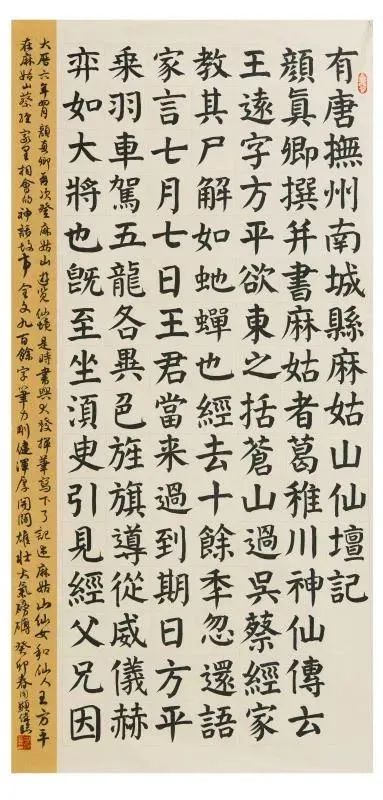 有唐撫州南城縣麻姑山仙壇記
顏真卿撰并書麻姑者葛稚川神仙傳云
王遠字方平欲東之括蒼山過吳蔡經家
教其尸解如虵蟬也經去十餘秊忽還語
家言七月七日王君當来過到期日方平
乗羽車駕五龍各異色旌旗導從威儀赫
弈如大將也旣至坐湏臾引見經父兄因
大曆六年四月顏真卿再次登麻姑山遊覽仙境是時書興大發揮筆寫下了記述麻姑山仙女和仙人王方平
在麻姑山蔡經家里相會的神話故事全文九百餘字筆力剛健渾厚開闊雄壯大氣磅礴癸卯春月